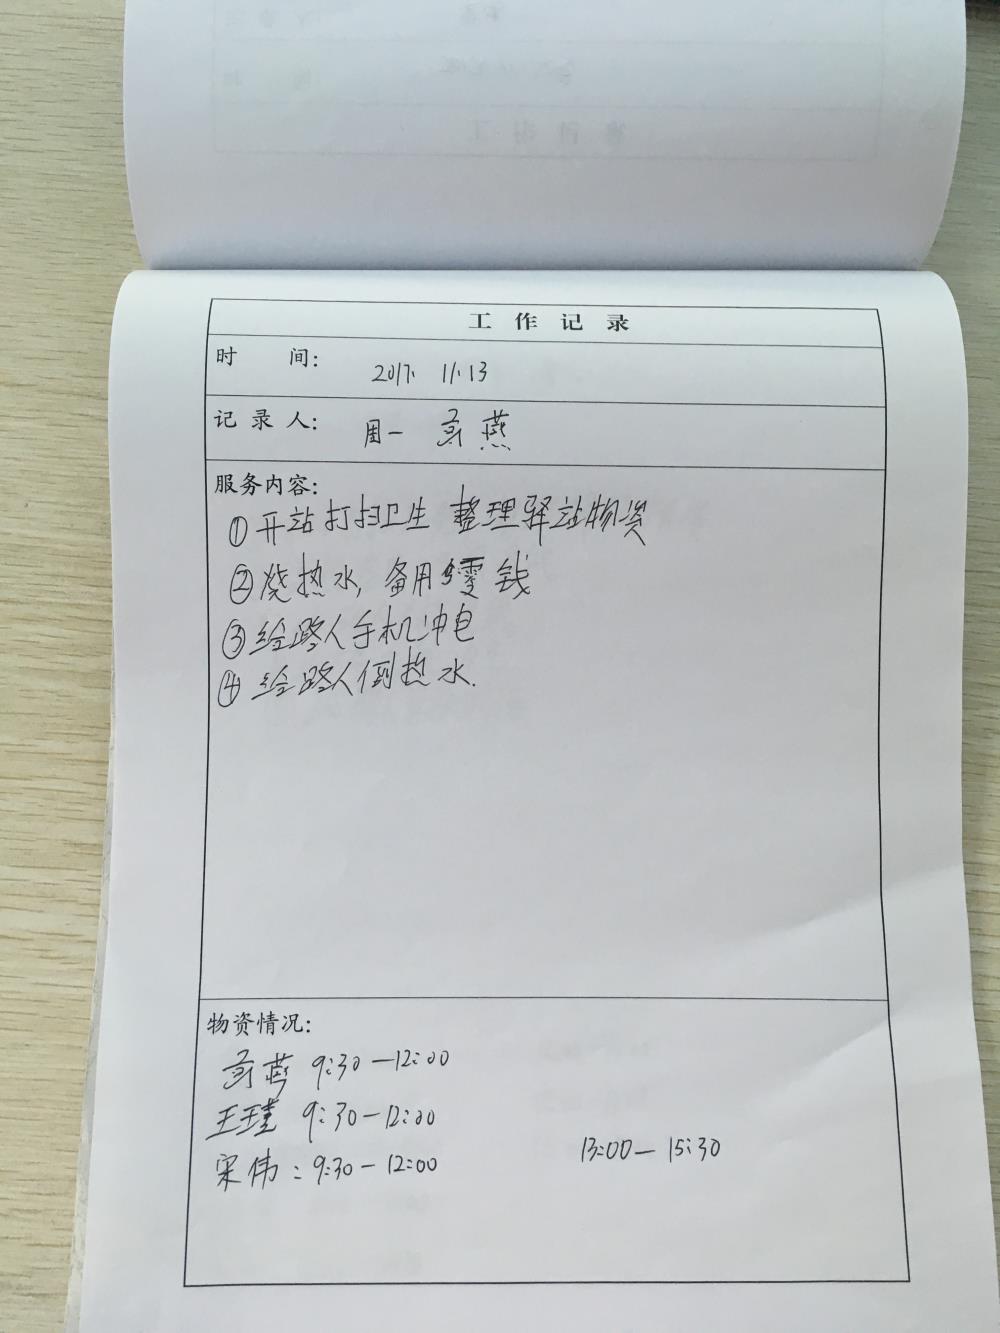 工作记录
时 间: 2017. 11.13
记录人: 周一 燕
服务内容:
①开站打扫卫生 整理驿站物资
②烧热水, 备用零钱
③给路人手机冲电
④给路人倒热水.
物资情况:
燕 9:30—12:00
王 9:30—12:00
宋伟: 9:30—12:00 13:00—15:30